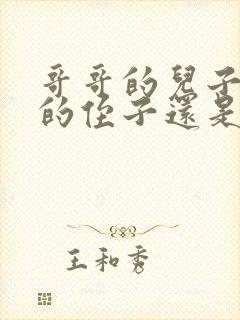 哥哥的兒子
的侄子還是
王和秀